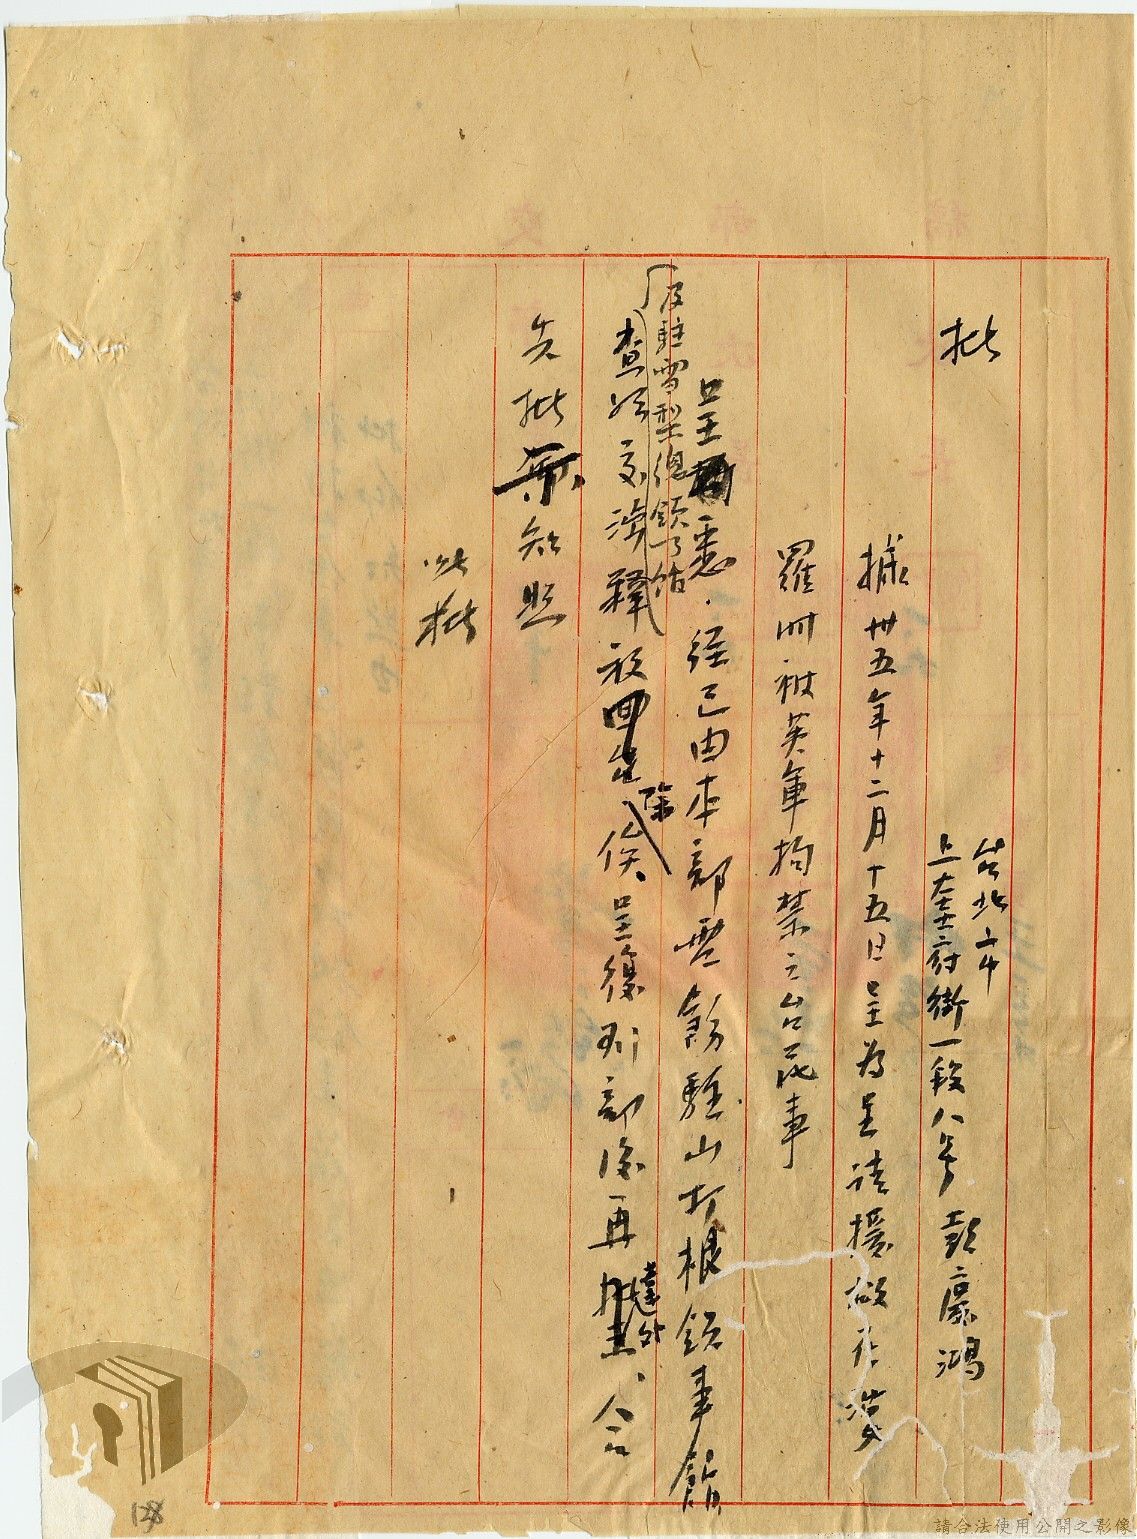 批
台北市
上奎府街一段八号 彭廣鴻
據卅五年十二月十五日呈為呈請援救於婆
羅洲被英軍拘禁之台民事
呈悉．經已由本部電飭駐山打根領事館
及駐雪梨總領事館
查明交涉釋放 除俟呈復到部後再達外、合
先批知照
此批
128
請合法使用公開之影像